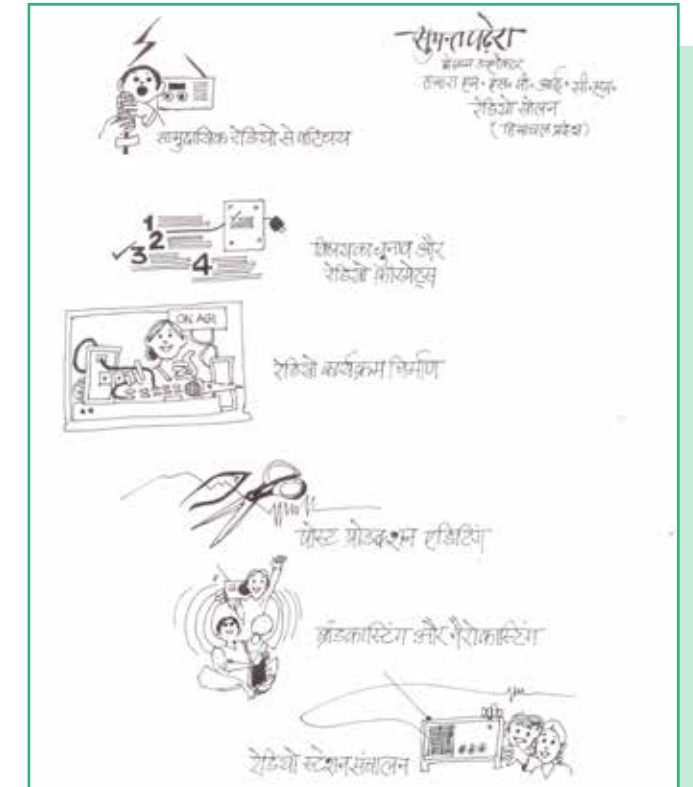 सुमन्त पदेरा
रेडियो सोलन
(हिमाचल प्रदेश)
सामुदायिक रेडियो से परिचय
1
2
3
4
विषय का चुनाव और
रेडियो फ़ॉरमेट्स
ON AIR
रेडियो कार्यक्रम निर्माण
पोस्ट प्रोडक्शन एडिटिंग
ब्रॉडकास्टिंग और नैरोकास्टिंग
रेडियो स्टेशन संचालन